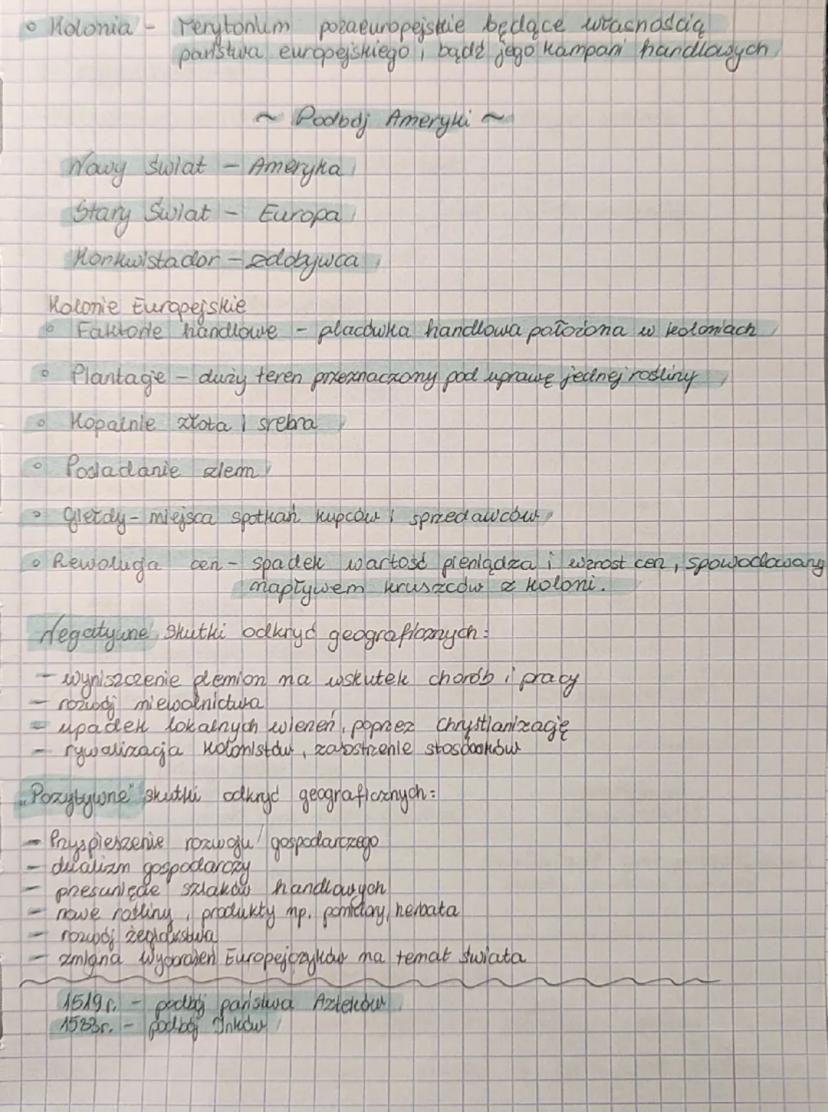 ° Kolonia - Terytorium pozaeuropejskie będące własnością
państwa europejskiego, bądź jego kampani handlowych
~ Podbój Ameryki ~
Nowy Świat - Ameryka
Stary Świat - Europa
Konkwistador - zdobywca
Kolonie Europejskie
° Faktorie handlowe - placówka handlowa położona w koloniach
° Plantacje - duży teren przeznaczony pod uprawę jednej rośliny
° Kopalnie złota i srebra
° Posiadanie ziem
° Giełdy - miejsca spotkań kupców i sprzedawców
° Rewolucja cen - spadek wartość pieniądza i wzrost cen, spowodowany
napływem kruszców z koloni.
Negatywne skutki odkryć geograficznych:
- wyniszczenie plemion na wskutek chorób i pracy
- rozwój niewolnictwa
- upadek lokalnych wierzeń, poprzez chrystianizację
- rywalizacja kolonistów, zaostrzenie stosunków
"Pozytywne" skutki odkryć geograficznych:
- Przyspieszenie rozwoju gospodarczego
- dualizm gospodarczy
- przesunięcie szlaków handlowych
- nowe rośliny, produkty np. pomidory, herbata
- rozwój żeglarstwa
- zmiana wyobrażeń Europejczyków na temat świata
1519r. - podbój państwa Azteków
1533r. - podbój Inków